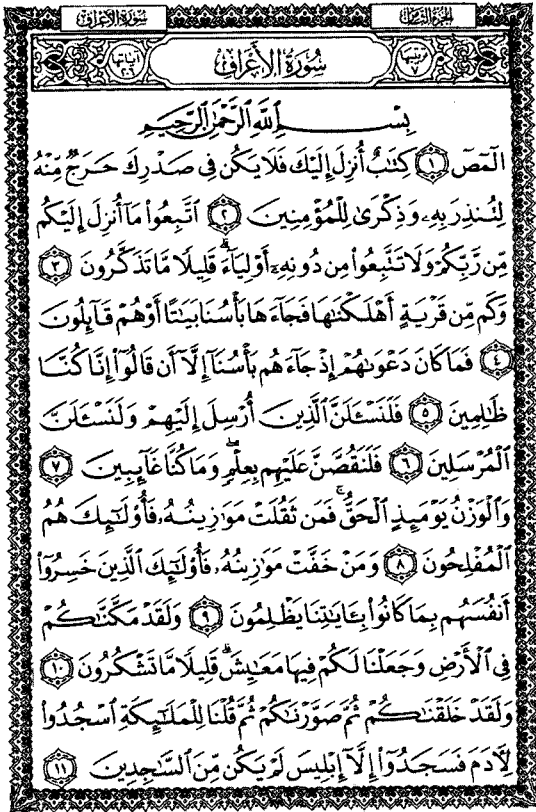 سُورَةُ الأَعْرَافِ
الجُزْءُ الثَّامِنُ
آيَاتُهَا
سُورَةُ الأَعْرَافِ
تَرْتِيبُهَا ٧
بِسْمِ ٱللَّهِ ٱلرَّحْمَٰنِ ٱلرَّحِيمِ
الٓمٓصٓ ١ كِتَٰبٌ أُنزِلَ إِلَيْكَ فَلَا يَكُن فِى صَدْرِكَ حَرَجٌ مِّنْهُ
لِتُنذِرَ بِهِۦ وَذِكْرَىٰ لِلْمُؤْمِنِينَ ٢ ٱتَّبِعُوا۟ مَآ أُنزِلَ إِلَيْكُم
مِّن رَّبِّكُمْ وَلَا تَتَّبِعُوا۟ مِن دُونِهِۦٓ أَوْلِيَآءَ ۗ قَلِيلًا مَّا تَذَكَّرُونَ ٣
وَكَم مِّن قَرْيَةٍ أَهْلَكْنَٰهَا فَجَآءَهَا بَأْسُنَا بَيَٰتًا أَوْ هُمْ قَآئِلُونَ
٤ فَمَا كَانَ دَعْوَىٰهُمْ إِذْ جَآءَهُم بَأْسُنَآ إِلَّآ أَن قَالُوٓا۟ إِنَّا كُنَّا
ظَٰلِمِينَ ٥ فَلَنَسْـَٔلَنَّ ٱلَّذِينَ أُرْسِلَ إِلَيْهِمْ وَلَنَسْـَٔلَنَّ
ٱلْمُرْسَلِينَ ٦ فَلَنَقُصَّنَّ عَلَيْهِم بِعِلْمٍ ۖ وَمَا كُنَّا غَآئِبِينَ ٧
وَٱلْوَزْنُ يَوْمَئِذٍ ٱلْحَقُّ ۚ فَمَن ثَقُلَتْ مَوَٰزِينُهُۥ فَأُو۟لَٰٓئِكَ هُمُ
ٱلْمُفْلِحُونَ ٨ وَمَنْ خَفَّتْ مَوَٰزِينُهُۥ فَأُو۟لَٰٓئِكَ ٱلَّذِينَ خَسِرُوٓا۟
أَنفُسَهُم بِمَا كَانُوا۟ بِـَٔايَٰتِنَا يَظْلِمُونَ ٩ وَلَقَدْ مَكَّنَّٰكُمْ
فِى ٱلْأَرْضِ وَجَعَلْنَا لَكُمْ فِيهَا مَعَٰيِشَ ۗ قَلِيلًا مَّا تَشْكُرُونَ ١٠
وَلَقَدْ خَلَقْنَٰكُمْ ثُمَّ صَوَّرْنَٰكُمْ ثُمَّ قُلْنَا لِلْمَلَٰٓئِكَةِ ٱسْجُدُوا۟
لِـَٔادَمَ فَسَجَدُوٓا۟ إِلَّآ إِبْلِيسَ لَمْ يَكُن مِّنَ ٱلسَّٰجِدِينَ ١١